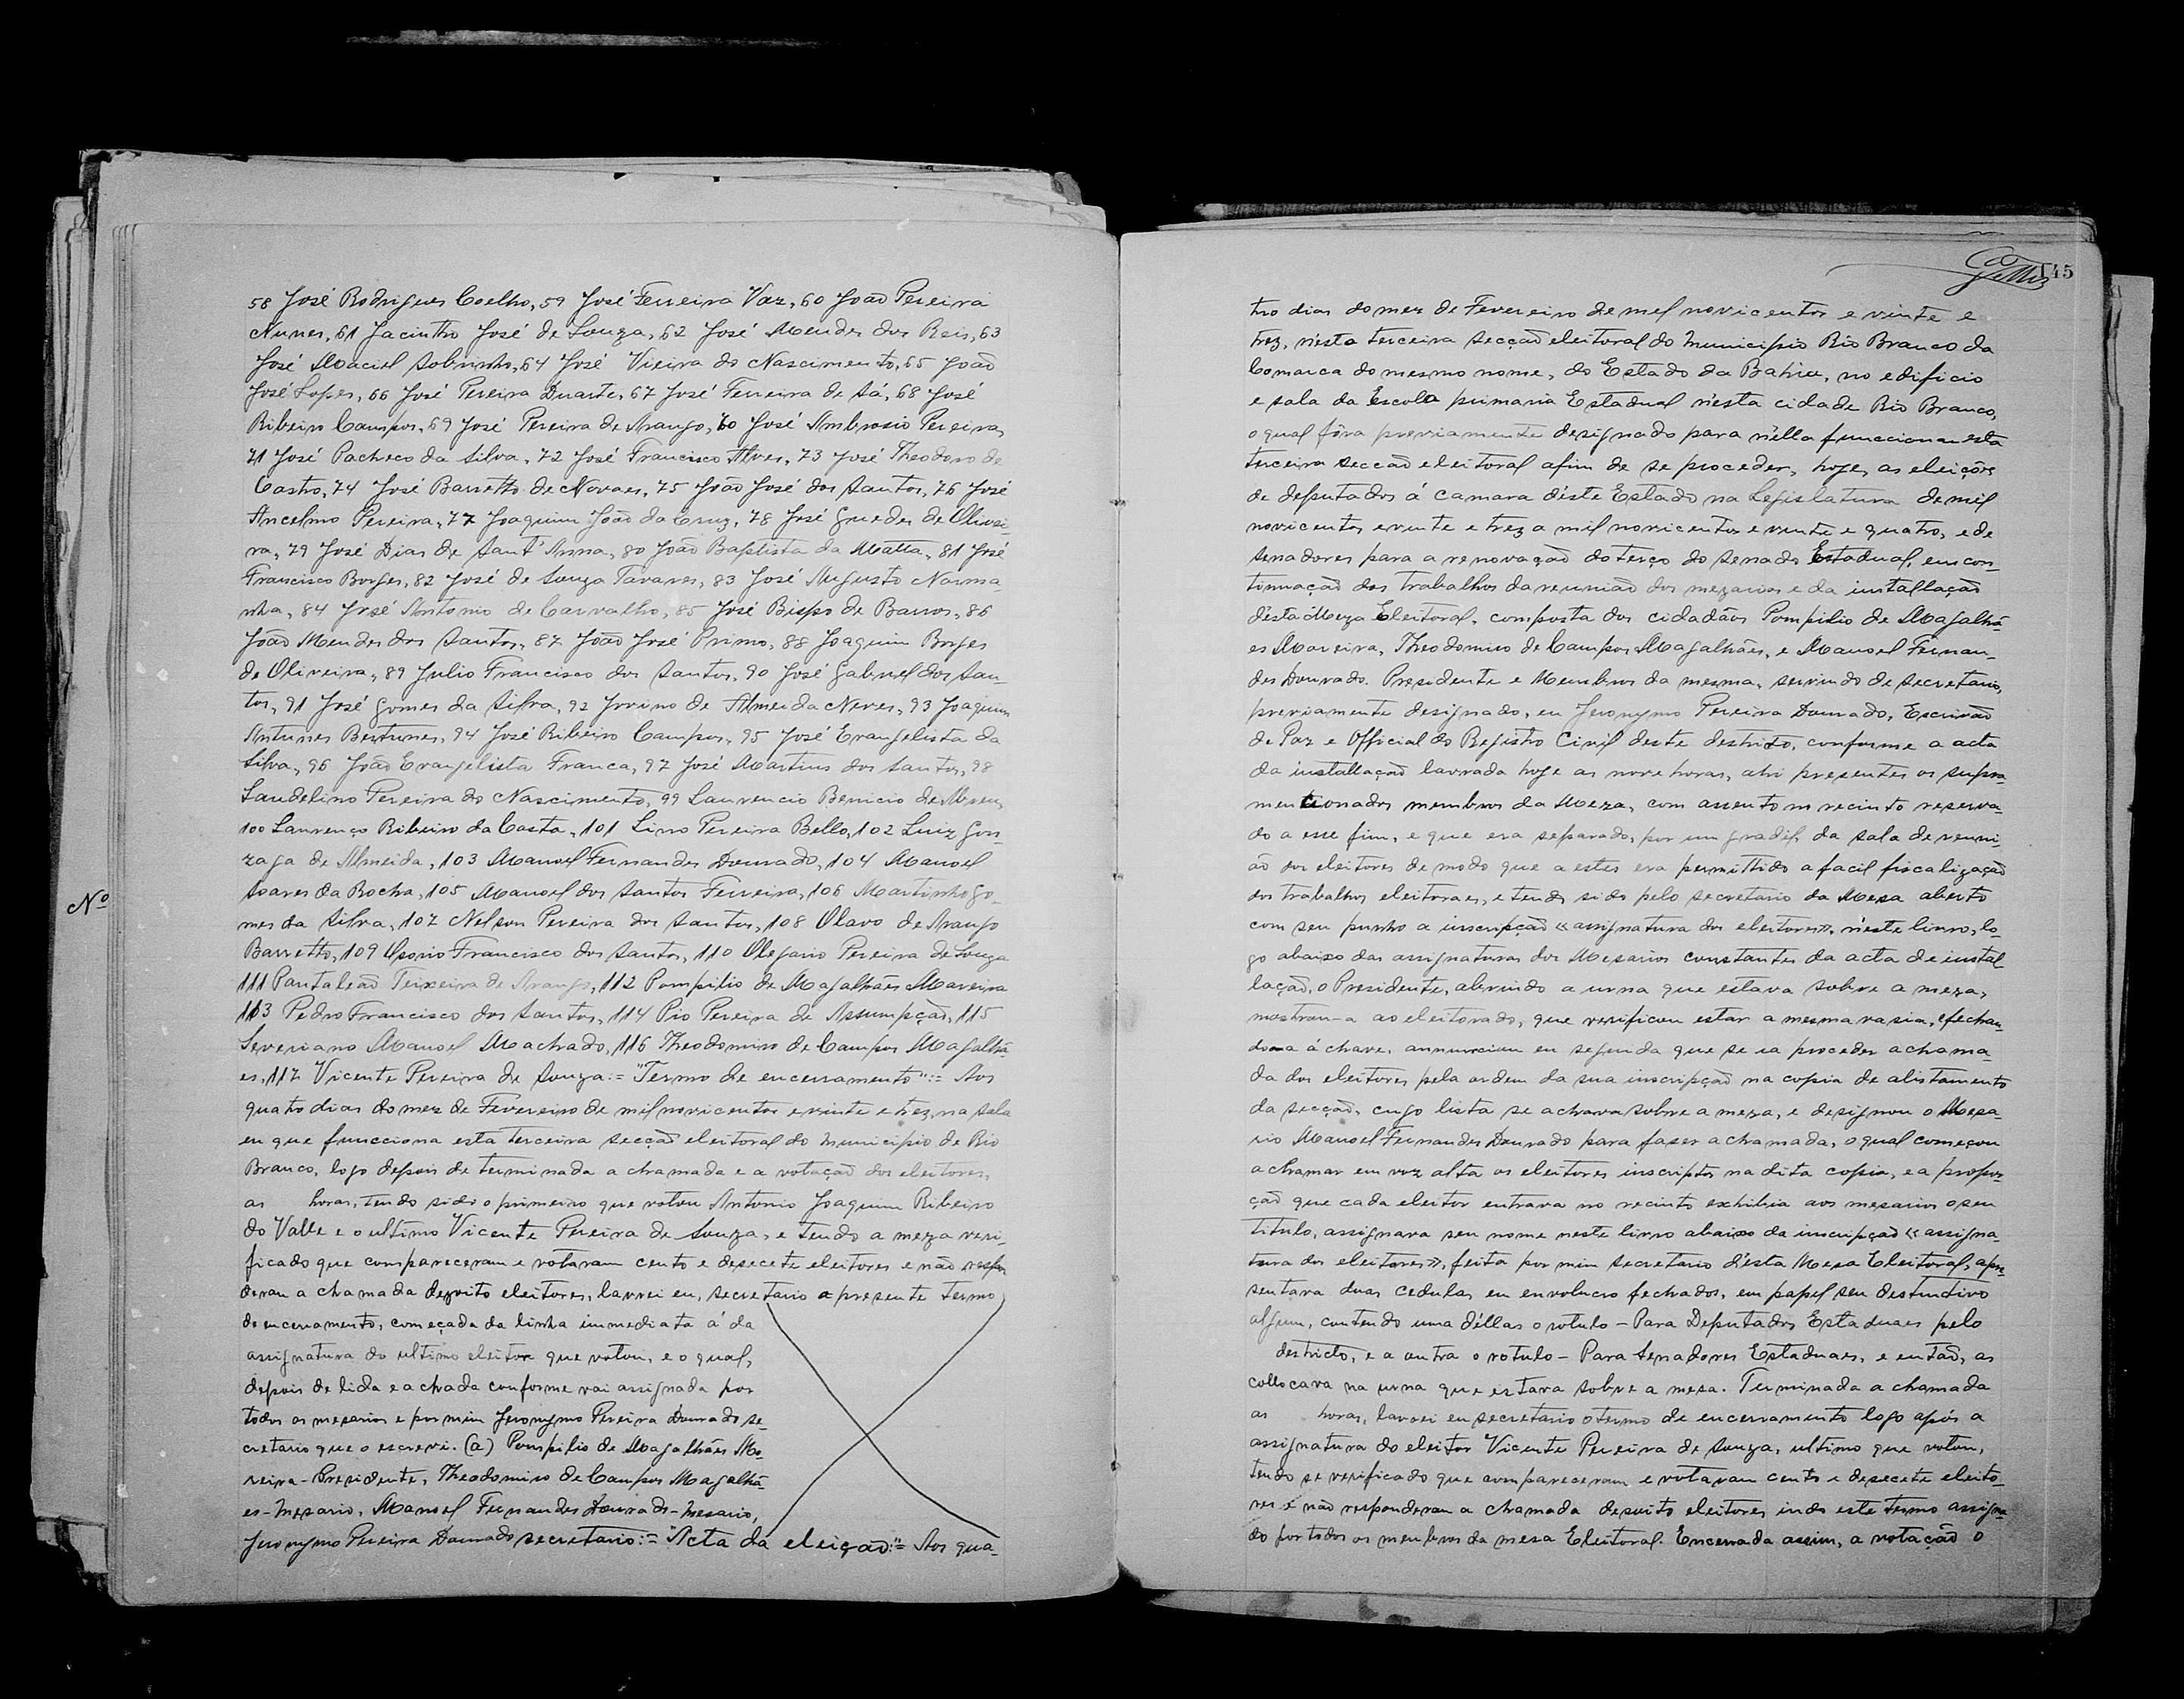 58 José Rodrigues Coelho, 59 José Ferreira Vaz, 60 João Pereira
Nunes, 61 Jacintho José de Souza, 62 José Mendes dos Reis, 63
José Maciel Sobrinho, 64 José Vieira do Nascimento, 65 João
José Lopes, 66 José Pereira Duarte, 67 José Ferreira de Sá, 68 José
Ribeiro Campos, 69 José Pereira de Araujo, 70 José Ambrosio Pereira,
71 José Pacheco da Silva, 72 José Francisco Alves, 73 José Theodoro de
Castro, 74 José Barretto de Novaes, 75 João José dos Santos, 76 José
Ancelmo Pereira, 77 Joaquim João da Cruz, 78 José Guedes de Olivei-
ra, 79 José Dias de Sant'Anna, 80 João Baptista da Matta, 81 José
Francisco Borges, 82 José de Souza Tavares, 83 José Augusto Norma-
nha, 84 José Antonio de Carvalho, 85 José Bispo de Barros, 86
João Mendes dos Santos, 87 João José Primo, 88 Joaquim Borges
de Oliveira, 89 Julio Francisco dos Santos, 90 José Gabriel dos San-
tos, 91 José Gomes da Silva, 92 Jovino de Almeida Neves, 93 Joaquim
Antunes Bestunes, 94 José Ribeiro Campos, 95 José Evangelista da
Silva, 96 João Evangelista Franca, 97 José Martins dos Santos, 98
Laudelino Pereira do Nascimento, 99 Laurencio Benicio de Abreu,
100 Laurenço Ribeiro da Costa, 101 Lino Pereira Bello, 102 Luiz Gon-
zaga de Almeida, 103 Manoel Fernandes Dourado, 104 Manoel
Soares da Rocha, 105 Manoel dos Santos Ferreira, 106 Martinho Go-
mes da Silva, 107 Nelson Pereira dos Santos, 108 Olavo de Araujo
Barretto, 109 Osorio Francisco dos Santos, 110 Olegario Pereira de Souza
111 Pantaleão Teixeira de Araujo, 112 Pompilio de Magalhães Moreira
113 Pedro Francisco dos Santos, 114 Pio Pereira de Assumpção, 115
Severiano Manoel Machado, 116 Theodomiro de Campos Magalhã-
es, 117 Vicente Pereira de Souza:= "Termo de encerramento":= Aos
quatro dias do mez de Fevereiro de mil novicentos e vinte e trez, na sala
em que funcciona esta terceira secção eleitoral do municipio de Rio
Branco, logo depois de terminada a chamada e a votação dos eleitores,
as horas, tendo sido o primeiro que votou Antonio Joaquim Ribeiro
do Valle e o ultimo Vicente Pereira de Souza, e tendo a meza veri-
ficado que compareceram e votaram cento e desecete eleitores e não respon
deram a chamada dezoito eleitores, lavrei eu, secretario a presente termo
de encerramento, começada da linha immediata á da
assignatura do ultimo eleitor que votou, e o qual,
depois de lida e achada conforme vai assignada por
todos os mesarios e por mim Jeronymo Pereira Dourado se-
cretario que o escrevi. (a) Pompilio de Magalhães Mo-
reira - Presidente, Theodomiro de Campos Magalhã-
es - Mesario, Manoel Fernandes Dourado - Mesario,
Jeronymo Pereira Dourado secretario:= "Acta da eleição:"= Aos qua-
Nº
145
tro dias do mez de Fevereiro de mil novicentos e vinte e
trez, n'esta terceira secção eleitoral do municipio Rio Branco da
Comarca do mesmo nome, do Estado da Bahia, no edificio
e sala da Escola primaria Estadual n'esta cidade Rio Branco,
o qual fôra previamente designado para n'ella funccionar esta
terceira secção eleitoral afim de se proceder, hoje, as eleições
de deputados á camara d'este Estado na Legislatura de mil
novicentos e vinte e trez a mil novicentos e vinte e quatro, e de
senadores para a renovação do terço do senado Estadual, em con-
tinuação dos trabalhos da reunião dos mezarios e da installação
d'esta Meza Eleitoral, composta dos cidadãos Pompilio de Magalhã-
es Moreira, Theodomiro de Campos Magalhães, e Manoel Fernan-
des Dourado. Presidente e Membros da mesma, servindo de secretario,
previamente designado, eu Jeronymo Pereira Dourado, Escrivão
de Paz e Official do Registro Civil deste destrito, conforme a acta
da installação lavrada hoje as nove horas, ahi presentes os supra-
mencionados membros da Meza, com assento no recinto reserva-
do a esse fim, e que era separado, por um gradil, da sala de reuni-
ão dos eleitores de modo que a estes era permittido a facil fiscalização
dos trabalhos eleitoraes, e tendo sido pelo secretario da Mesa aberto
com seu punho a inscripção «assignatura dos eleitores», n'este livro, lo-
go abaixo das assignaturas dos Mesarios constantes da acta de instal-
lação, o Presidente, abrindo a urna que estava sobre a meza,
mostrou-a ao eleitorado, que verificou estar a mesma vasia, e fechan-
do-a á chave, annunciou em seguida que se ia proceder a chama-
da dos eleitores pela ordem da sua inscripção na copia de alistamento
da secção, cujo lista se achava sobre a meza, e designou o Mesa-
rio Manoel Fernandes Dourado para faser a chamada, o qual começou
a chamar em voz alta os eleitores inscriptos na dita copia, e a propor-
ção que cada eleitor entrava no recinto exhibia aos mesarios o seu
titulo, assignava seu nome neste livro abaixo da inscripção «assigna-
tura dos eleitores», feita por mim secretario d'esta Mesa Eleitoral, apre-
sentava duas cedulas em envolucro fechados, em papel sem destinctivo
algum, contendo uma d'ellas o rotulo - Para Deputados Estaduaes pelo
destricto, e a outra o rotulo - Para Senadores Estaduaes, e então, as
collocava na urna que estava sobre a mesa. Terminada a chamada
as horas, lavrei eu secretario o termo de encerramento logo após a
assignatura do eleitor Vicente Pereira de Souza, ultimo que votou,
tendo se verificado que compareceram e votaram cento e desecete eleito-
res e não responderam a chamada desoito eleitores indo este termo assigna-
do por todos os membros da mesa Eleitoral. Encerrada assim, a votação o